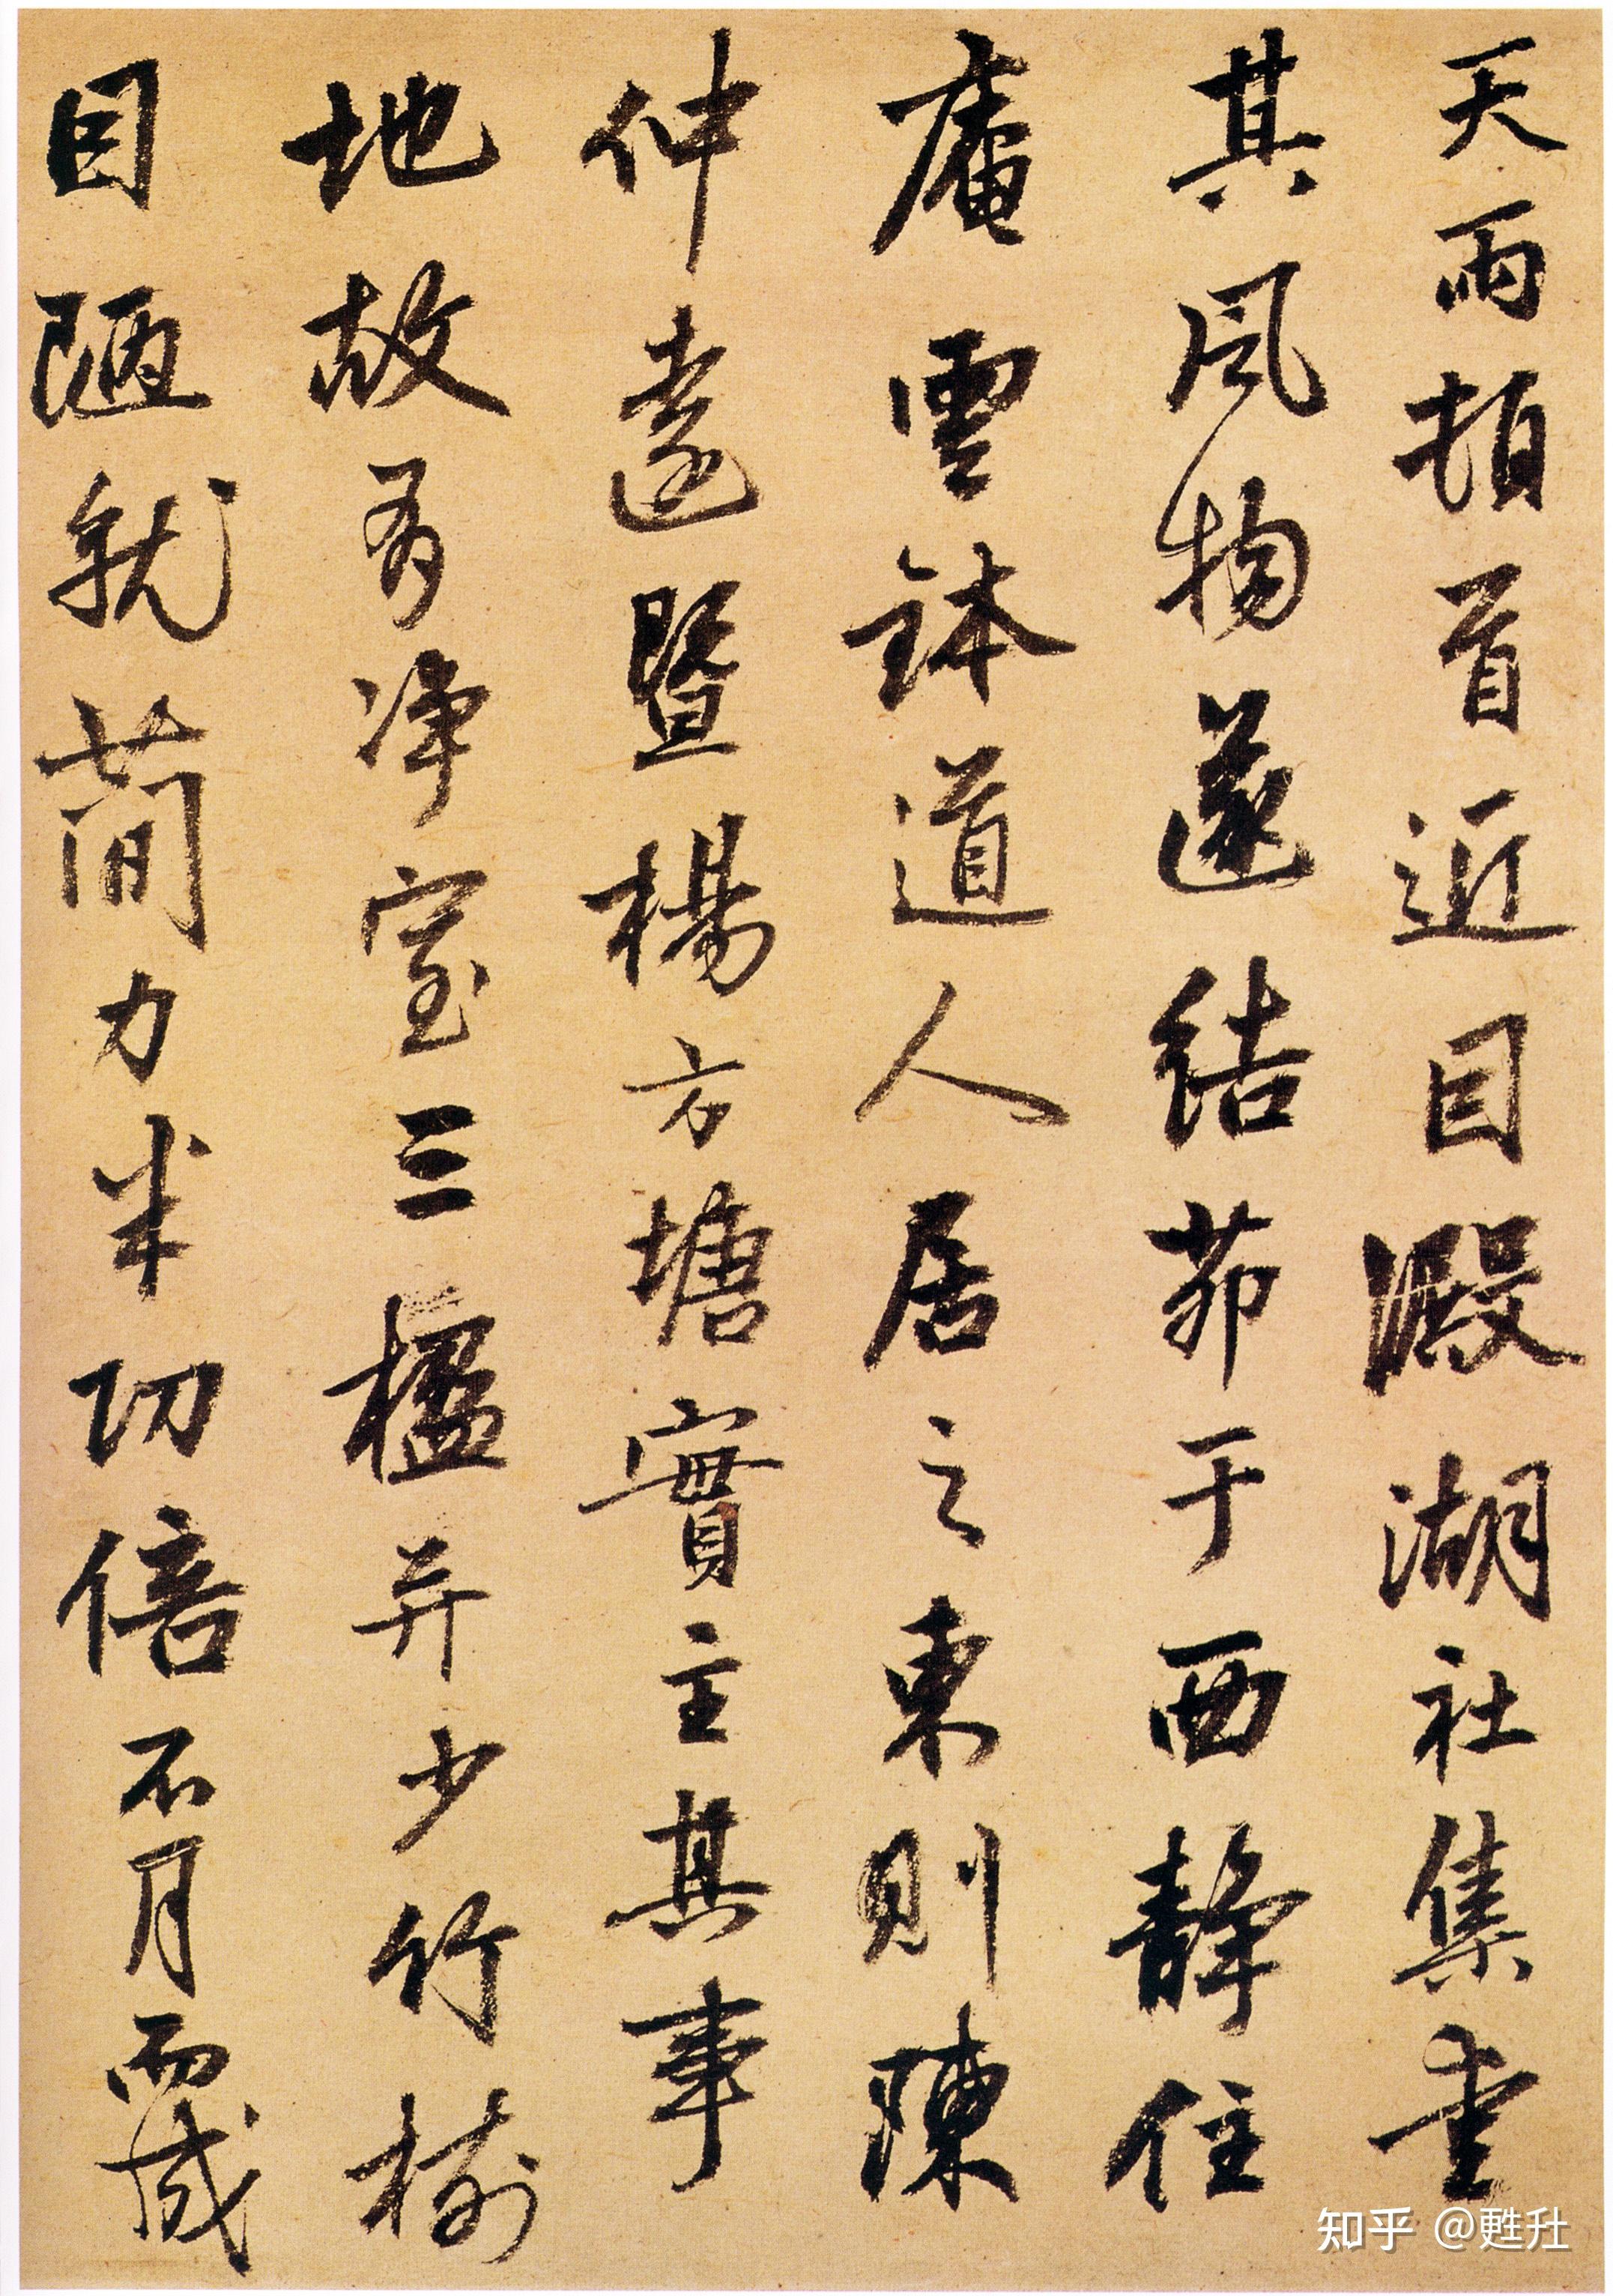 天雨頓首近因澱湖社集重
其風物遂結茆于西静住
庵雲鉢道人居之東則陳
仲遠暨楊方塘實主其事
地故有净室三楹并少竹樹
因陋就蕳力半功倍不月而成
知乎 @甦廾